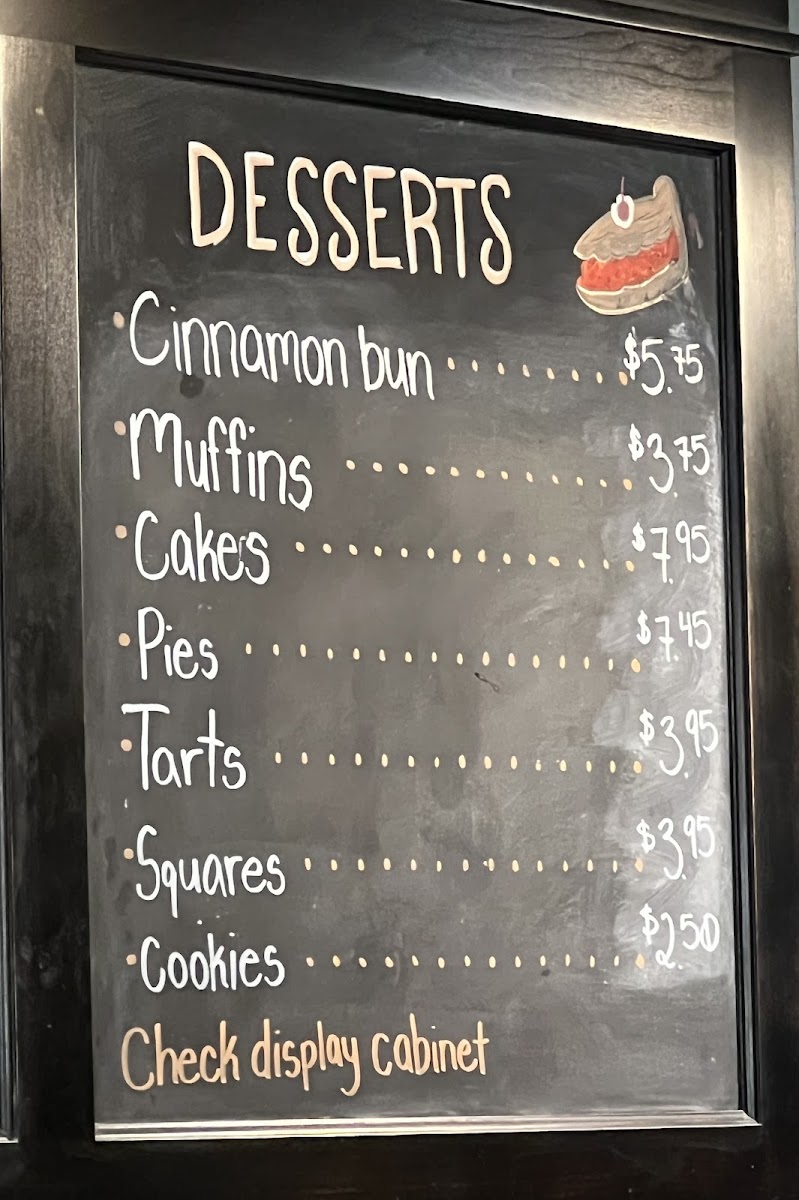 DESSERTS
•Cinnamon bun ........ $5.75
•Muffins ............ $3.75
•Cakes ............. $7.95
•Pies ................ $7.45
•Tarts ............... $3.95
•Squares ............. $3.95
•Cookies ............. $2.50
Check display cabinet